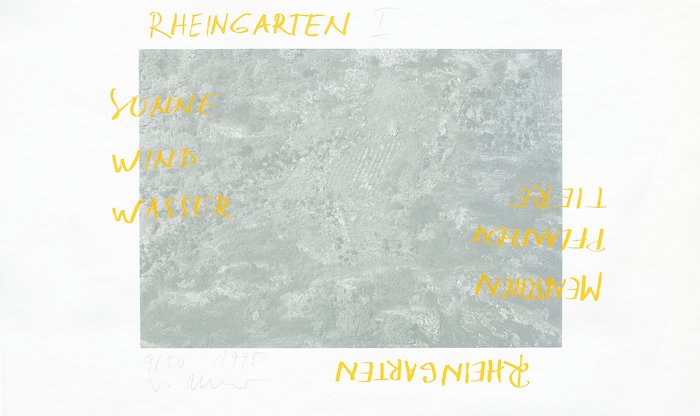 RHEINGARTEN I
SONNE
WIND
WASSER
RHEINGARTEN
MENSCHEN
PFLANZEN
TIERE
9/50 1995